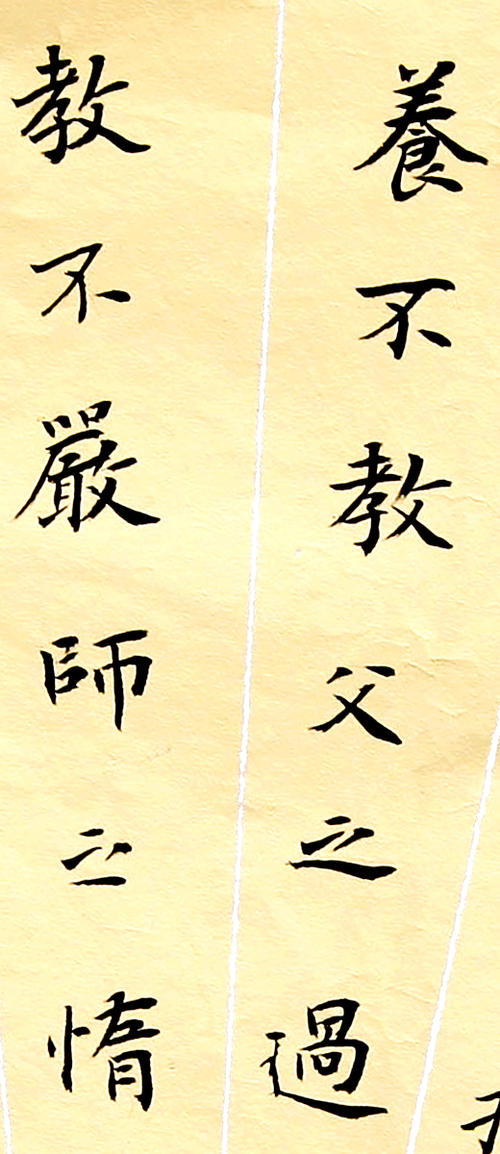 養不教父之過
教不嚴師之惰